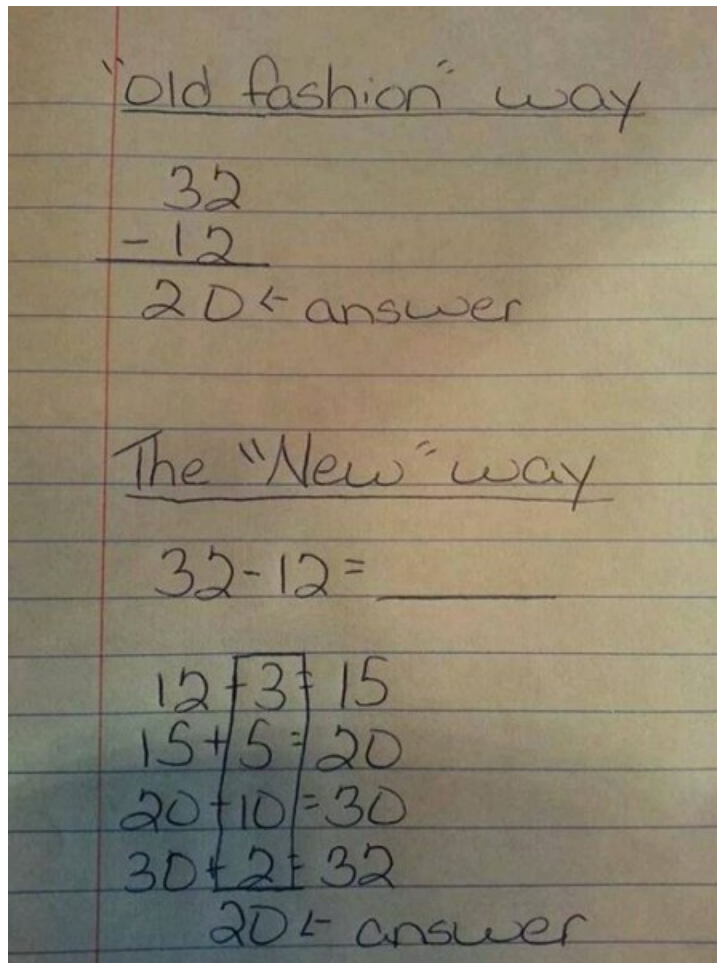 "old fashion" way
32
- 12
20 ← answer
The "New" way
32 - 12 = ______
12 + 3 = 15
15 + 5 = 20
20 + 10 = 30
30 + 2 = 32
20 ← answer